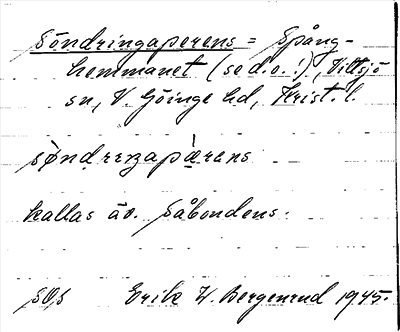 Söndringaperens = Spång-
hemmanet (se d.o.!), Vittsjö
sn, V. Göinge hd, Krist. l.
kallas äv. Såbondens.
Erik W. Bergenrud 1945.